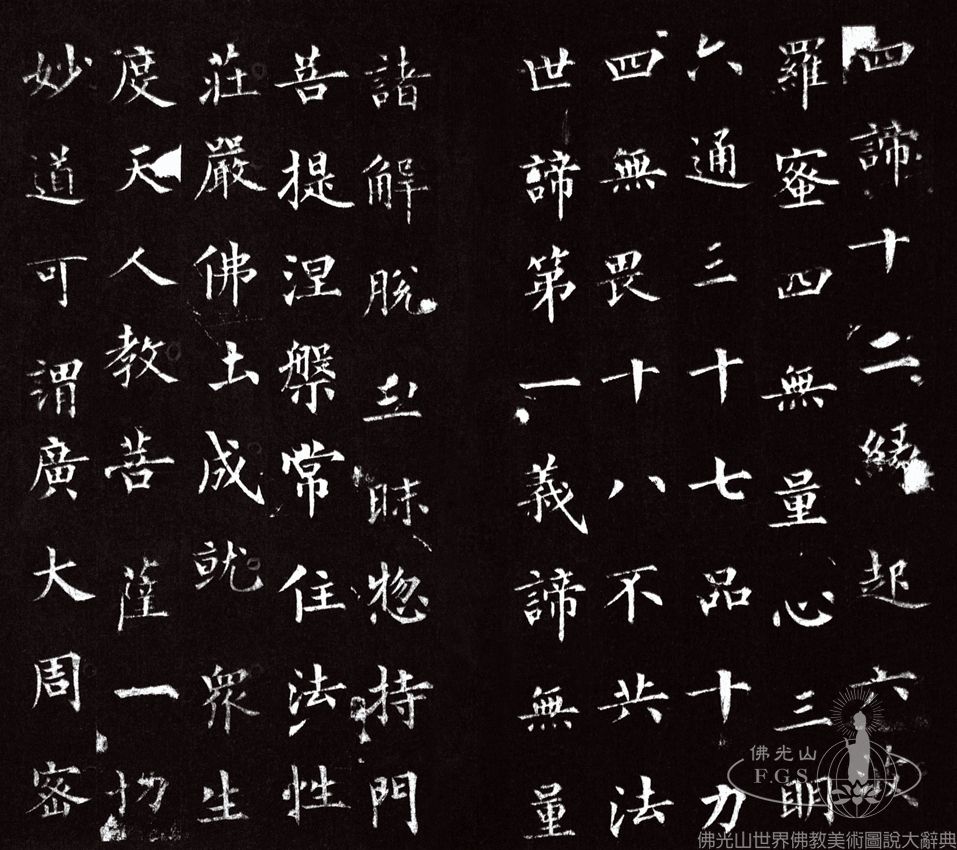 四諦十二緣起六波
羅蜜四無量心三明
六通三十七品十力
四無畏十八不共法
世諦第一義諦無量
諸解脫三昧惣持門
菩提涅槃常住法性
莊嚴佛土成就眾生
度天人教菩薩一切
妙道可謂廣大周密
佛光山
F.G.S
佛光山世界佛教美術圖說大辭典